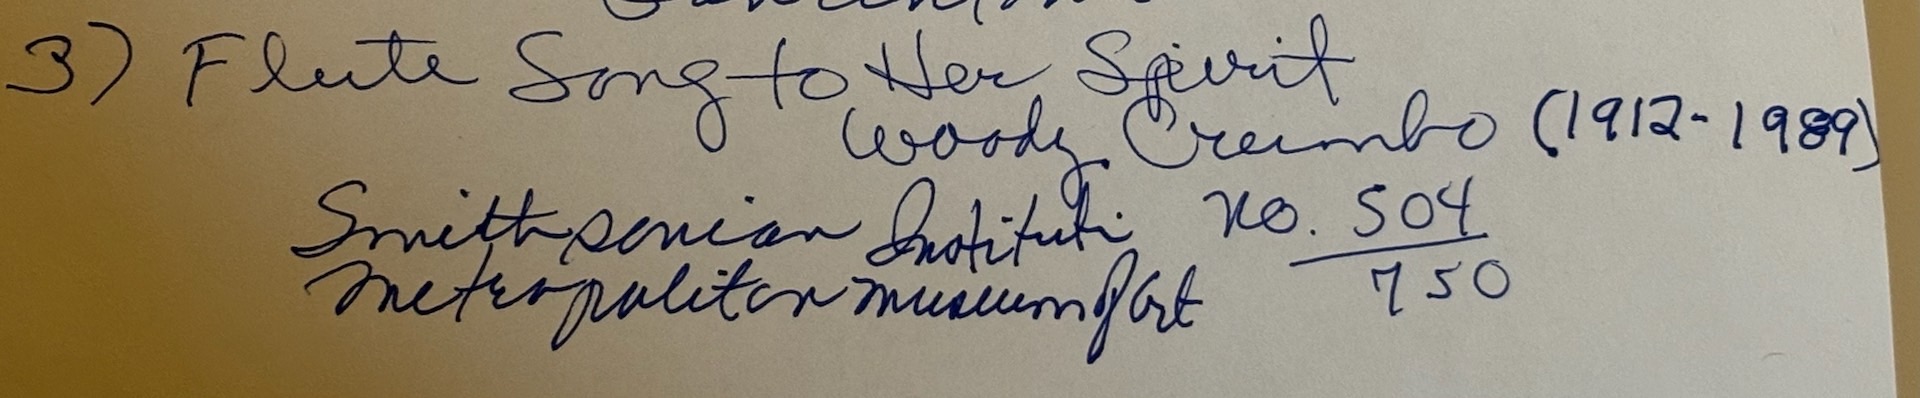 3) Flute Song to Her Spirit
Woody Crumbo (1912-1989)
Smithsonian Instituti no. 504
750
Metropolitan museum of art